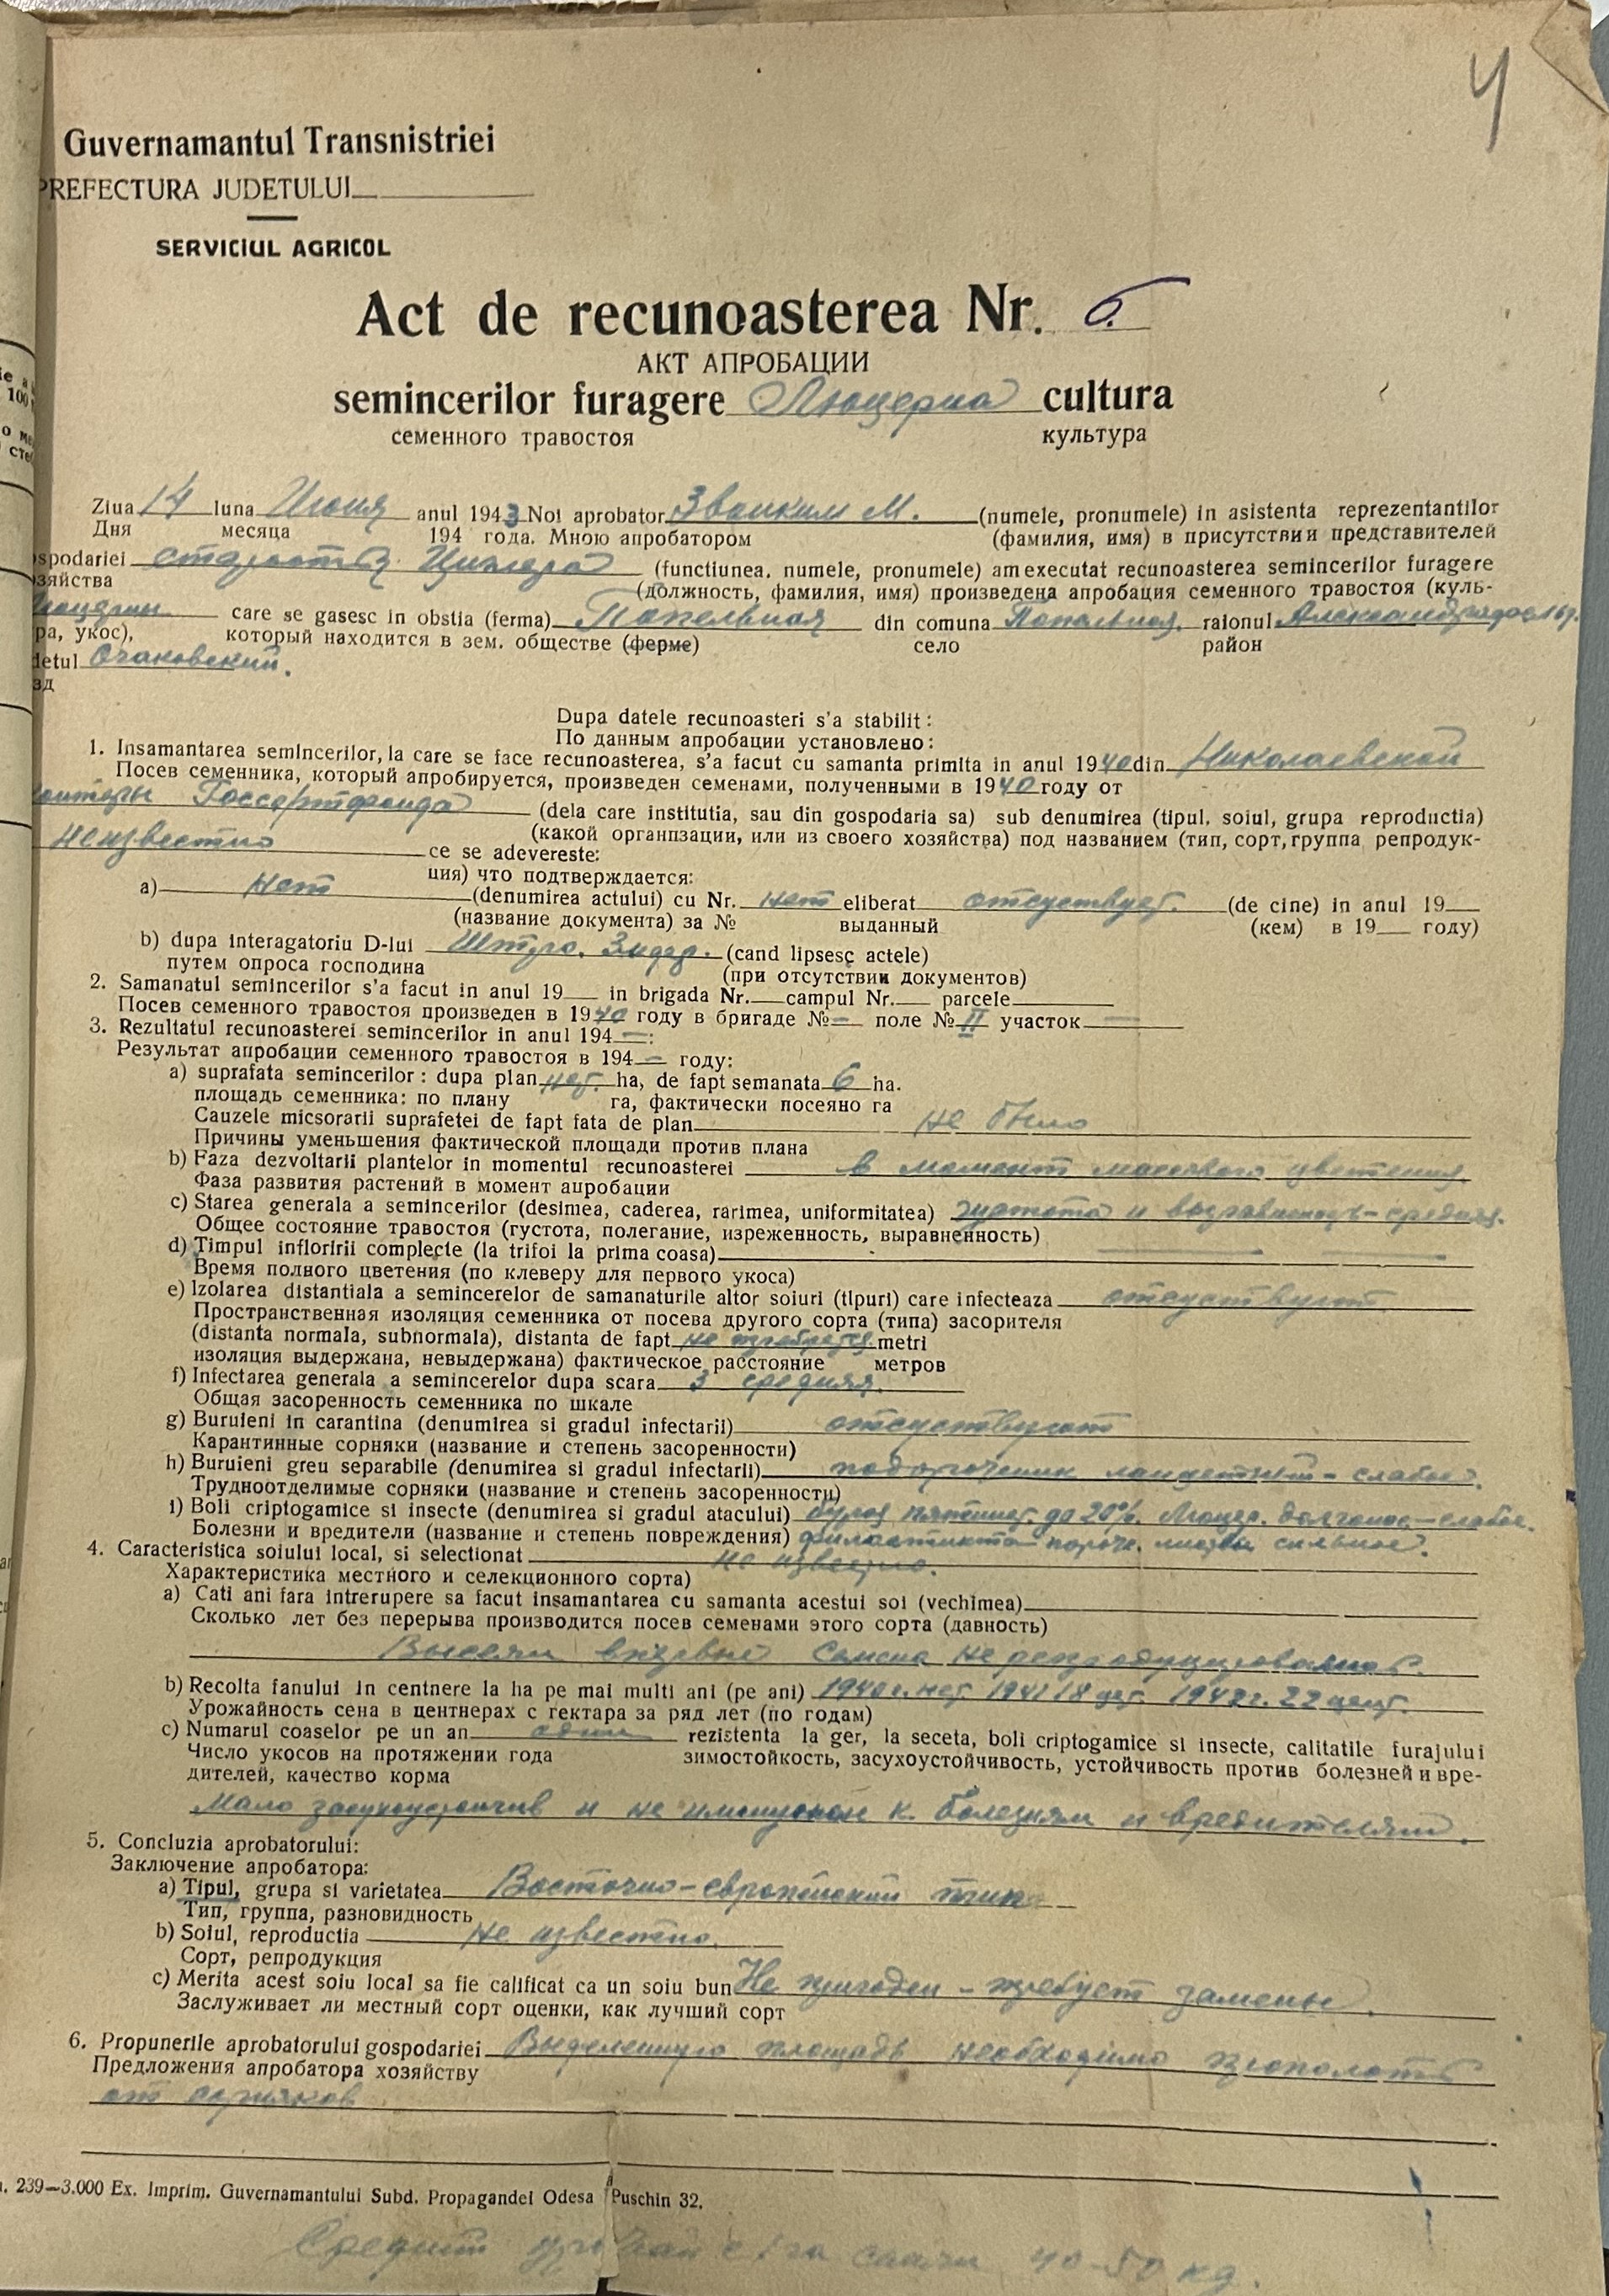 4
Guvernamantul Transnistriei
PREFECTURA JUDETULUI
SERVICIUL AGRICOL
Act de recunoasterea Nr. 6.
АКТ АПРОБАЦИИ
semincerilor furagere Люцерна cultura
семенного травостоя культура
Ziua 14 luna Июня anul 1943 Noi aprobator М. (numele, pronumele) in asistenta reprezentantilor
Дня месяца 194 года. Мною апробатором (фамилия, имя) в присутствии представителей
spodariei (functiunea, numele, pronumele) am executat recunoasterea semincerilor furagere
зяйства (должность, фамилия, имя) произведена апробация семенного травостоя (куль-
care se gasesc in obstia (ferma) Попельная din comuna Попельная, raionul
ра, укос), который находится в зем. обществе (ферме) село район
detul Очаковский.
зд
Dupa datele recunoasteri s'a stabilit:
По данным апробации установлено:
1. Insamantarea semincerilor, la care se face recunoasterea, s'a facut cu samanta primita in anul 1940 din Николаевской
Посев семенника, который апробируется, произведен семенами, полученными в 1940 году от
конторы Госсортфонда (dela care institutia, sau din gospodaria sa) sub denumirea (tipul, soiul, grupa reproductia)
(какой организации, или из своего хозяйства) под названием (тип, сорт, группа репродук-
неизвестно ce se adevereste:
ция) что подтверждается:
a) нет (denumirea actului) cu Nr. нет eliberat отсутствует. (de cine) in anul 19
(название документа) за № выданный (кем) в 19 году)
b) dupa interagatoriu D-lui (cand lipsesc actele)
путем опроса господина (при отсутствии документов)
2. Samanatul semincerilor s'a facut in anul 19 in brigada Nr. campul Nr. parcele
Посев семенного травостоя произведен в 1940 году в бригаде № — поле № II участок —
3. Rezultatul recunoasterei semincerilor in anul 194 —:
Результат апробации семенного травостоя в 194 — году:
a) suprafata semincerilor: dupa plan нет. ha, de fapt semanata 6 ha.
площадь семенника: по плану га, фактически посеяно га
Cauzele micsorarii suprafetei de fapt fata de plan не было
Причины уменьшения фактической площади против плана
b) Faza dezvoltarii plantelor in momentul recunoasterei в момент массового цветения.
Фаза развития растений в момент апробации
c) Starea generala a semincerilor (desimea, caderea, rarimea, uniformitatea) густота и выравненность – средняя.
Общее состояние травостоя (густота, полегание, изреженность, выравненность)
d) Timpul infloririi complecte (la trifoi la prima coasa) — —
Время полного цветения (по клеверу для первого укоса)
e) Izolarea distantiala a semincerelor de samanaturile altor soiuri (tipuri) care infecteaza отсутствуют
Пространственная изоляция семенника от посева другого сорта (типа) засорителя
(distanta normala, subnormala), distanta de fapt не требуется. metri
изоляция выдержана, невыдержана) фактическое расстояние метров
f) Infectarea generala a semincerelor dupa scara 3 средняя.
Общая засоренность семенника по шкале
g) Buruieni in carantina (denumirea si gradul infectarii) отсутствуют
Карантинные сорняки (название и степень засоренности)
h) Buruieni greu separabile (denumirea si gradul infectarii) подорожник ланцетный – слабое.
Трудноотделимые сорняки (название и степень засоренности)
i) Boli criptogamice si insecte (denumirea si gradul atacului) бурая пятнист. до 20%. Люцер. долгонос. – слабое.
Болезни и вредители (название и степень повреждения) сильное.
4. Caracteristica soiului local, si selectionat не известно.
Характеристика местного и селекционного сорта)
a) Cati ani fara intrerupere sa facut insamantarea cu samanta acestui soi (vechimea)
Сколько лет без перерыва производится посев семенами этого сорта (давность)
Высеян впервые Семена не репродуцировалис.
b) Recolta fanului in centnere la ha pe mai multi ani (pe ani) 1940 г. нет 1941 18 цет. 1942 г. 22 цент.
Урожайность сена в центнерах с гектара за ряд лет (по годам)
c) Numarul coaselor pe un an один rezistenta la ger, la seceta, boli criptogamice si insecte, calitatile furajului
Число укосов на протяжении года зимостойкость, засухоустойчивость, устойчивость против болезней и вре-
дителей, качество корма
Мало засухоустойчив и не имунный к болезням и вредителям.
5. Concluzia aprobatorului:
Заключение апробатора:
a) Tipul, grupa si varietatea Восточно-европейский тип
Тип, группа, разновидность
b) Soiul, reproductia не известно.
Сорт, репродукция
c) Merita acest soiu local sa fie calificat ca un soiu bun Не пригоден – требует замены.
Заслуживает ли местный сорт оценки, как лучший сорт
6. Propunerile aprobatorului gospodariei Выделенную площадь необходимо прополоть
Предложения апробатора хозяйству
от сорняков
239—3.000 Ex. Imprim. Guvernamantului Subd. Propagandei Odesa Puschin 32.
Средний урожай с 1 га 40-50 кг.